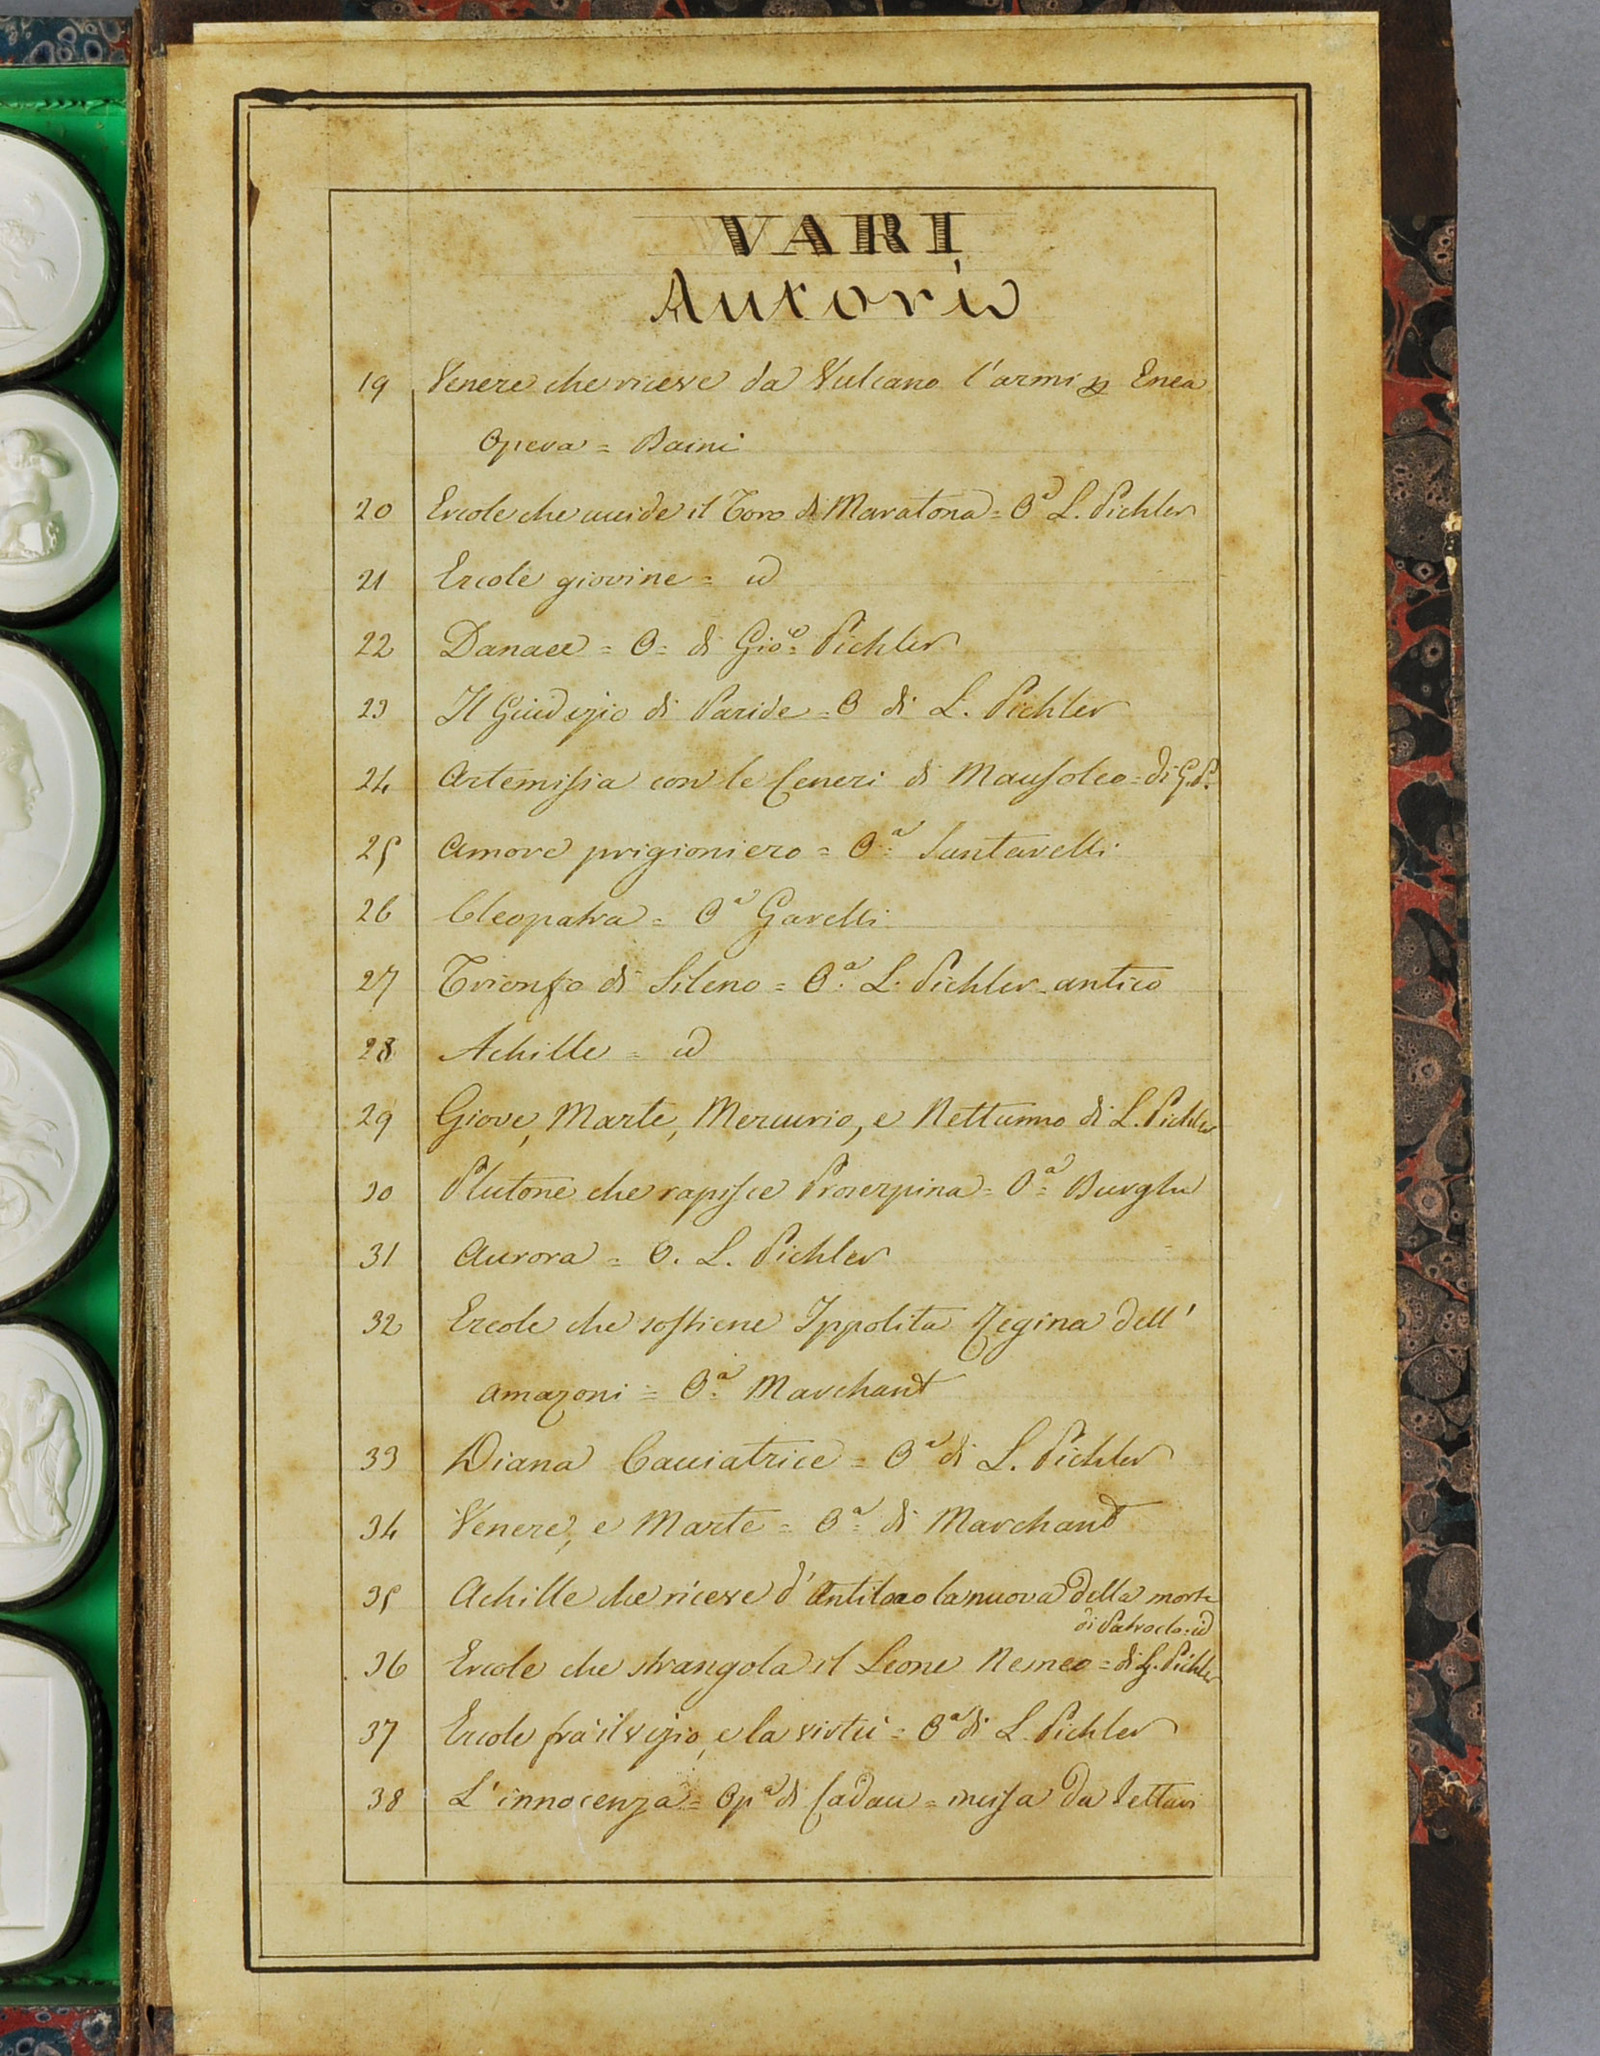 VARI
Autori
19 Venere che riceve da Vulcano l'armi p Enea
Opera = Baini
20 Ercole che uccide il Toro di Maratona = Oa L. Pichler
21 Ercole giovine = id
22 Danae = O = di Gioe Pichler
23 Il Giudizio di Paride = O di L. Pichler
24 Artemisia con le Ceneri di Mausoleo = di G.P.
25 Amore prigioniero = Oa Santarelli
26 Cleopatra = Oa Garelli
27 Trionfo di Sileno = Oa L. Pichler antico
28 Achille = id
29 Giove, Marte, Mercurio, e Nettunno di L. Pichler
30 Plutone che rapisce Proserpina = Oa Burghu
31 Aurora = O. L. Pichler
32 Ercole che sostiene Ippolita Regina dell'
amazoni = Oa Marchant
33 Diana Cacciatrice = Oa di L. Pichler
34 Venere, e Marte = Oa di Marchant
35 Achille che riceve d' Antiloco la nuova della morte
di Patroclo = id
36 Ercole che strangola il Leone Nemeo = di G. Pichler
37 Ercole frà il vizio, e la virtù = Oa di L. Pichler
38 L'innocenza = Opa di Cadau = incisa da